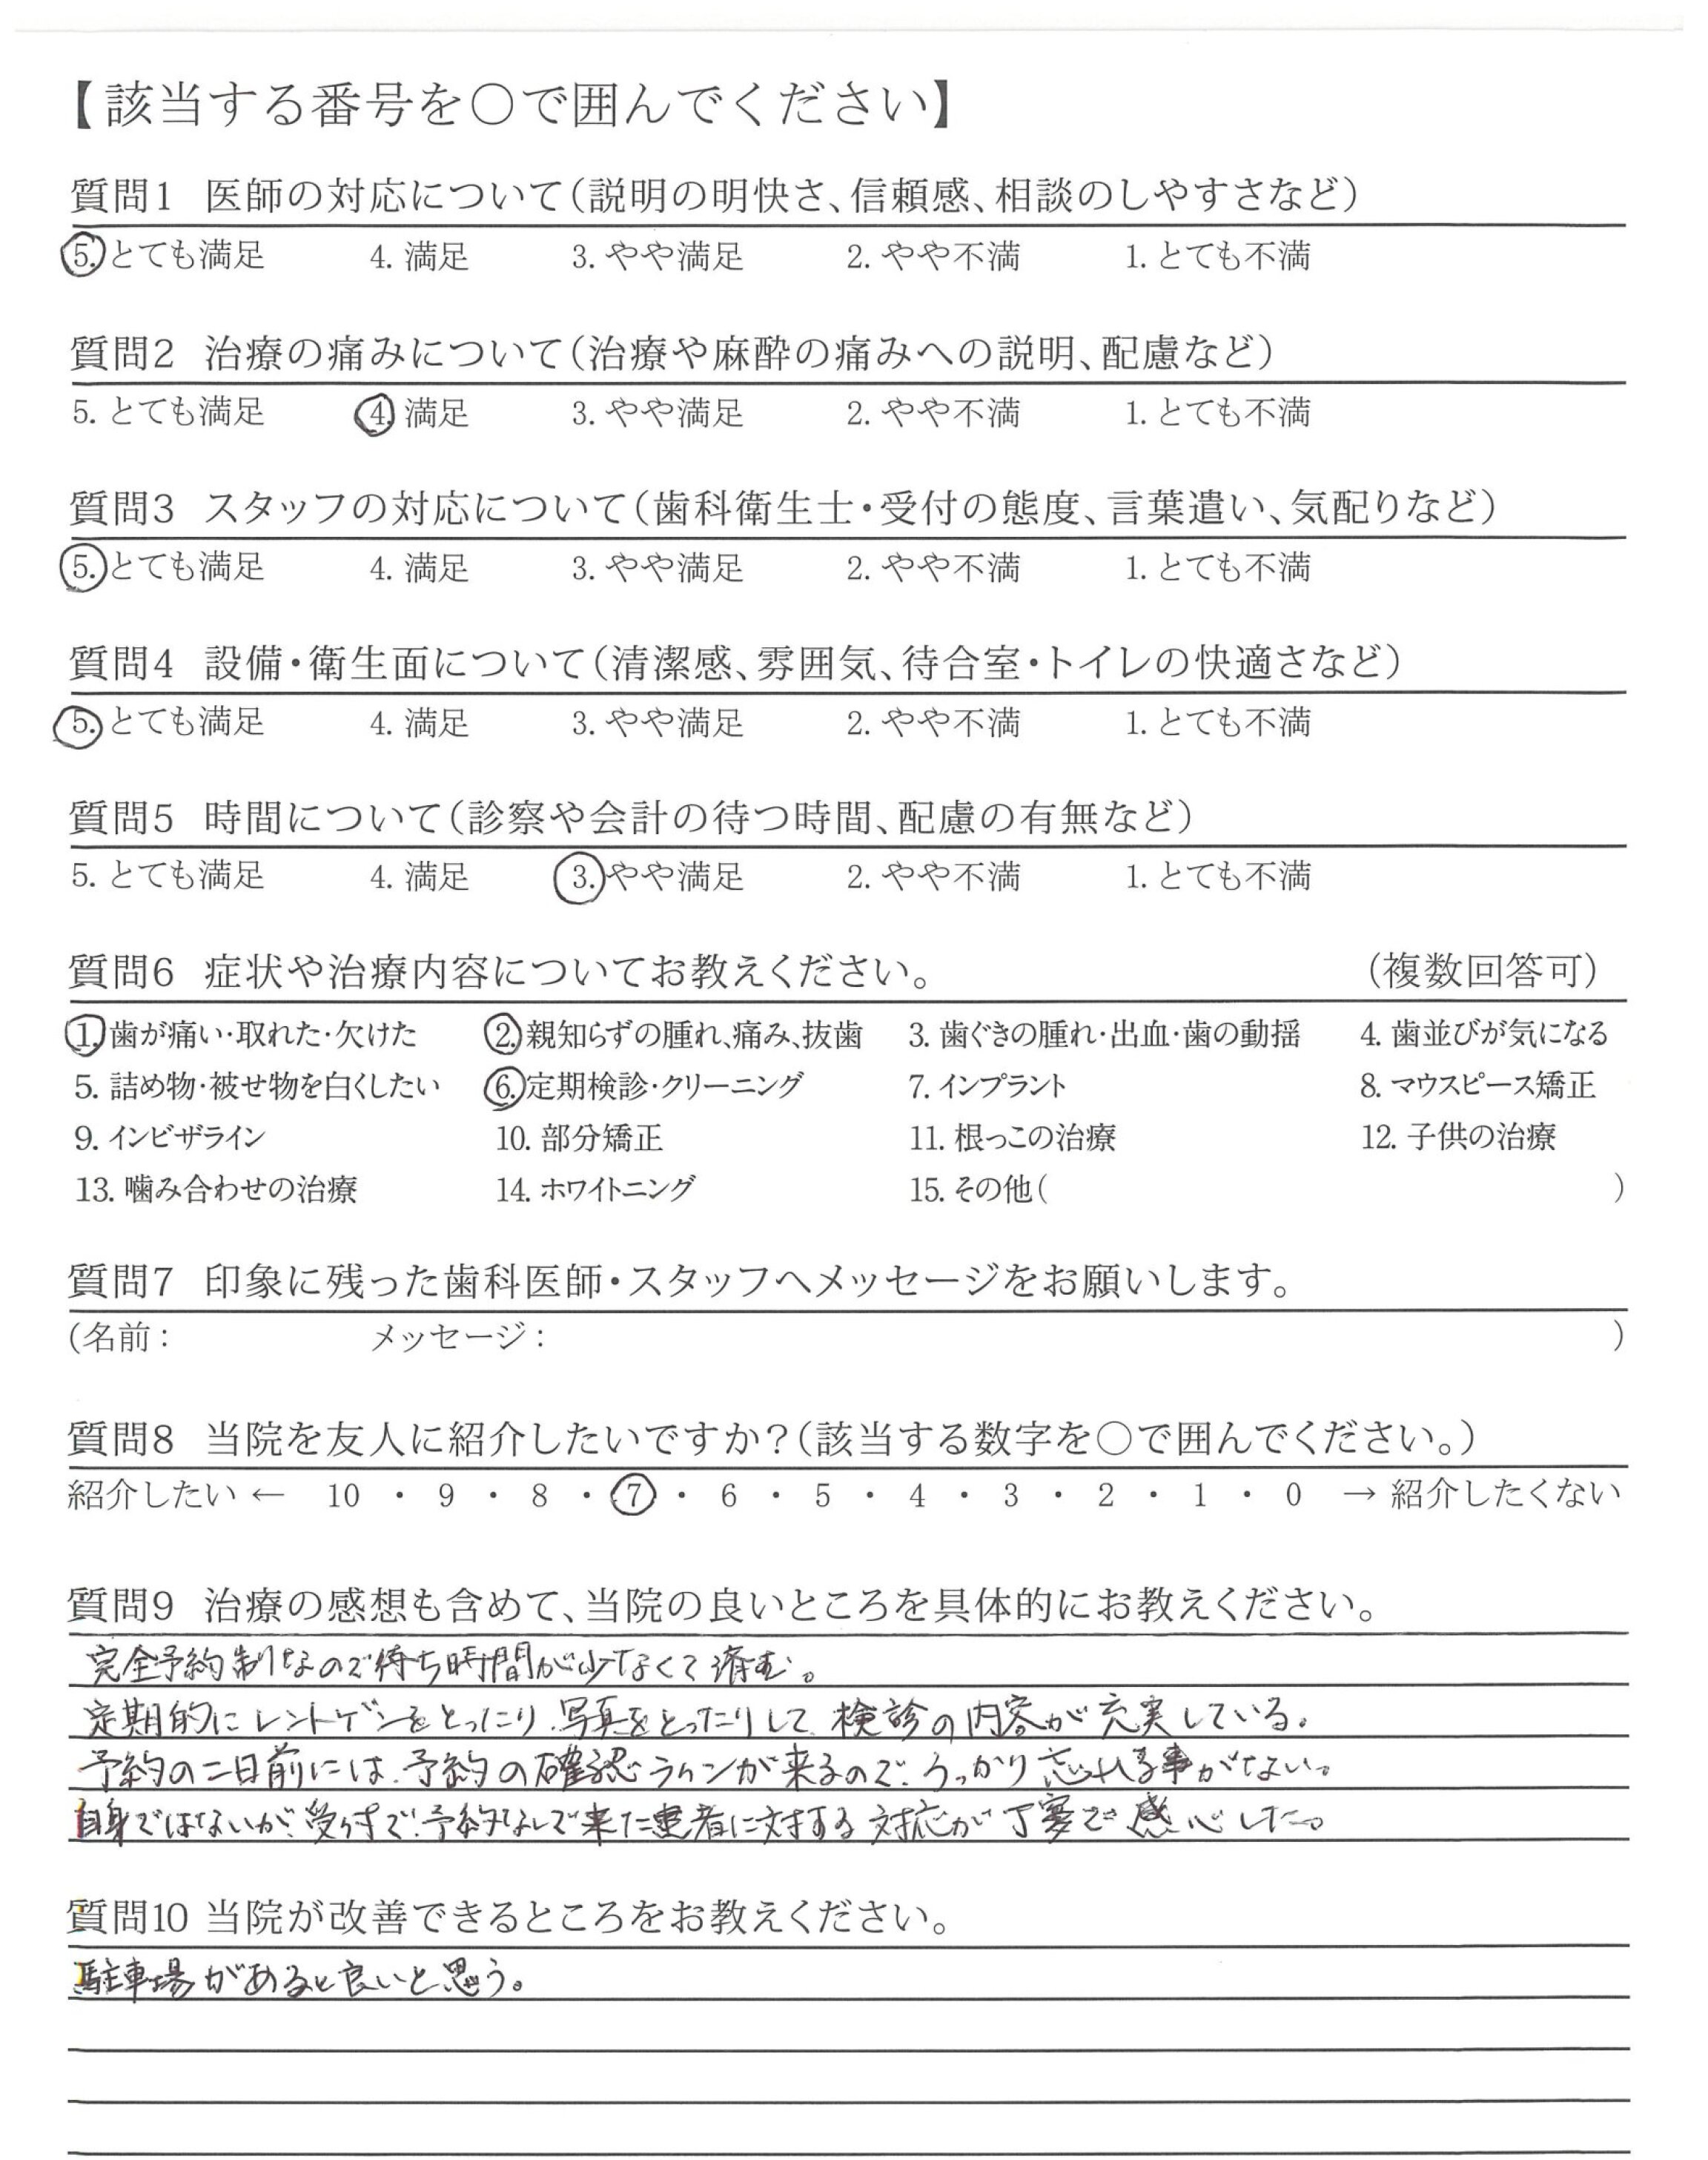 【該当する番号を○で囲んでください】
質問1 医師の対応について(説明の明快さ、信頼感、相談のしやすさなど)
5. とても満足 4. 満足 3. やや満足 2. やや不満 1. とても不満
質問2 治療の痛みについて(治療や麻酔の痛みへの説明、配慮など)
5. とても満足 4. 満足 3. やや満足 2. やや不満 1. とても不満
質問3 スタッフの対応について(歯科衛生士・受付の態度、言葉遣い、気配りなど)
5. とても満足 4. 満足 3. やや満足 2. やや不満 1. とても不満
質問4 設備・衛生面について(清潔感、雰囲気、待合室・トイレの快適さなど)
5. とても満足 4. 満足 3. やや満足 2. やや不満 1. とても不満
質問5 時間について(診察や会計の待つ時間、配慮の有無など)
5. とても満足 4. 満足 3. やや満足 2. やや不満 1. とても不満
質問6 症状や治療内容についてお教えください。 (複数回答可)
1. 歯が痛い・取れた・欠けた 2. 親知らずの腫れ、痛み、抜歯 3. 歯ぐきの腫れ・出血・歯の動揺 4. 歯並びが気になる
5. 詰め物・被せ物を白くしたい 6. 定期検診・クリーニング 7. インプラント 8. マウスピース矯正
9. インビザライン 10. 部分矯正 11. 根っこの治療 12. 子供の治療
13. 噛み合わせの治療 14. ホワイトニング 15. その他( )
質問7 印象に残った歯科医師・スタッフへメッセージをお願いします。
(名前: メッセージ: )
質問8 当院を友人に紹介したいですか?(該当する数字を○で囲んでください。)
紹介したい ← 10 ・ 9 ・ 8 ・ 7 ・ 6 ・ 5 ・ 4 ・ 3 ・ 2 ・ 1 ・ 0 → 紹介したくない
質問9 治療の感想も含めて、当院の良いところを具体的にお教えください。
完全予約制なので待ち時間が少なくて済む。
定期的にレントゲンをとったり、写真をとったりして、検診の内容が充実している。
予約の二日前には、予約の確認ラインが来るので、うっかり忘れる事がない。
自身ではないが、受付で、予約なしで来た患者に対する対応が丁寧で感心した。
質問10 当院が改善できるところをお教えください。
駐車場があると良いと思う。